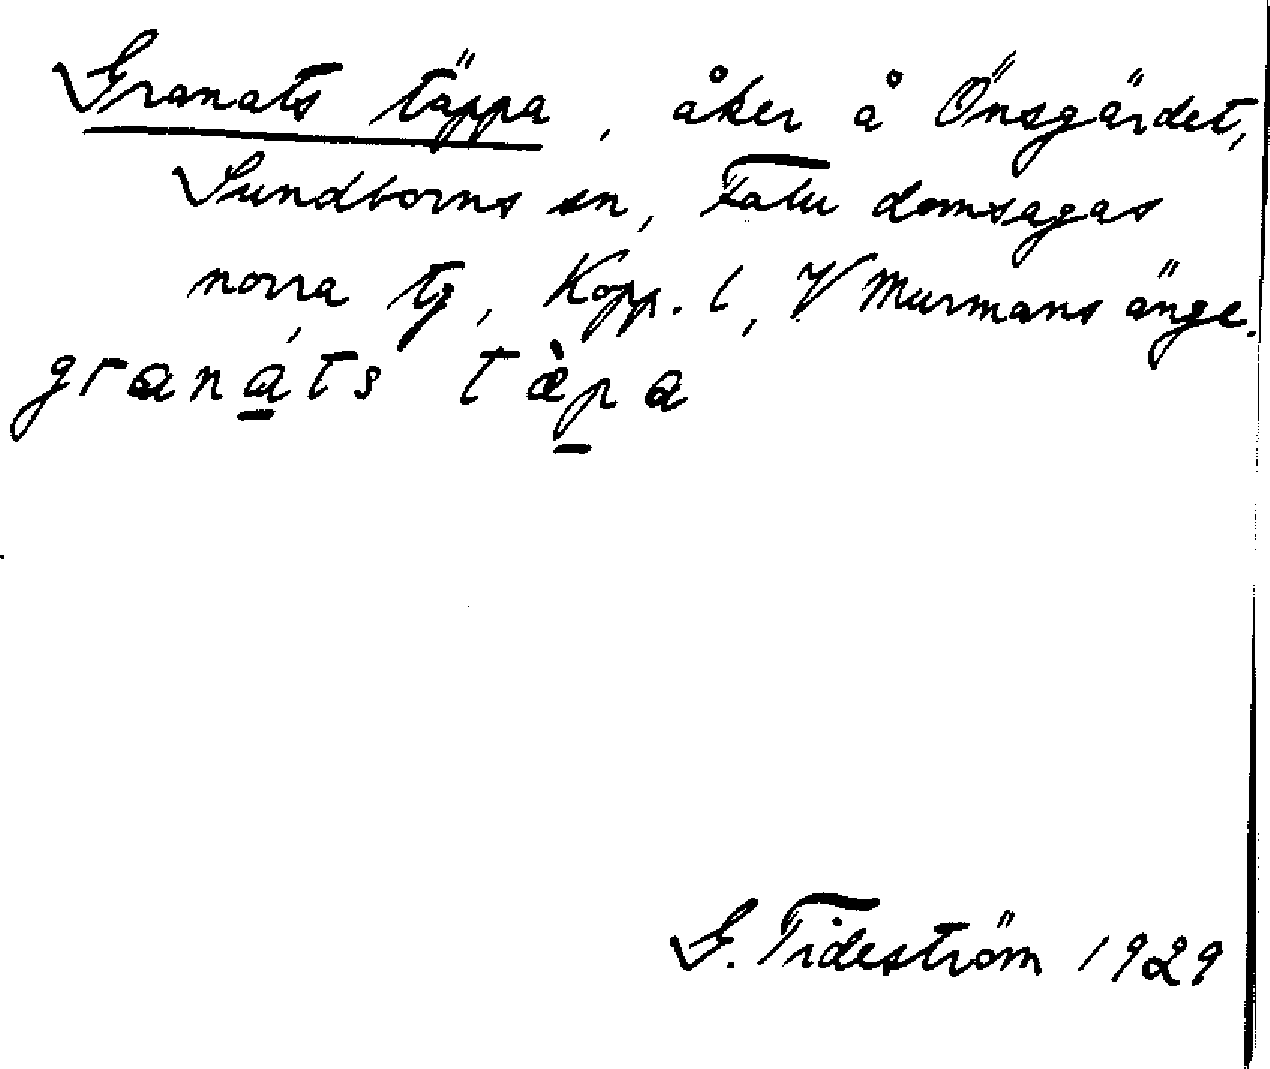 Granats täppa, åker å Önsgärdet,
Sundborns sn, Falu domsagas
norra tg, Kopp. l, V Murmans änge.
granáts tæ̀pa
G. Tideström 1929